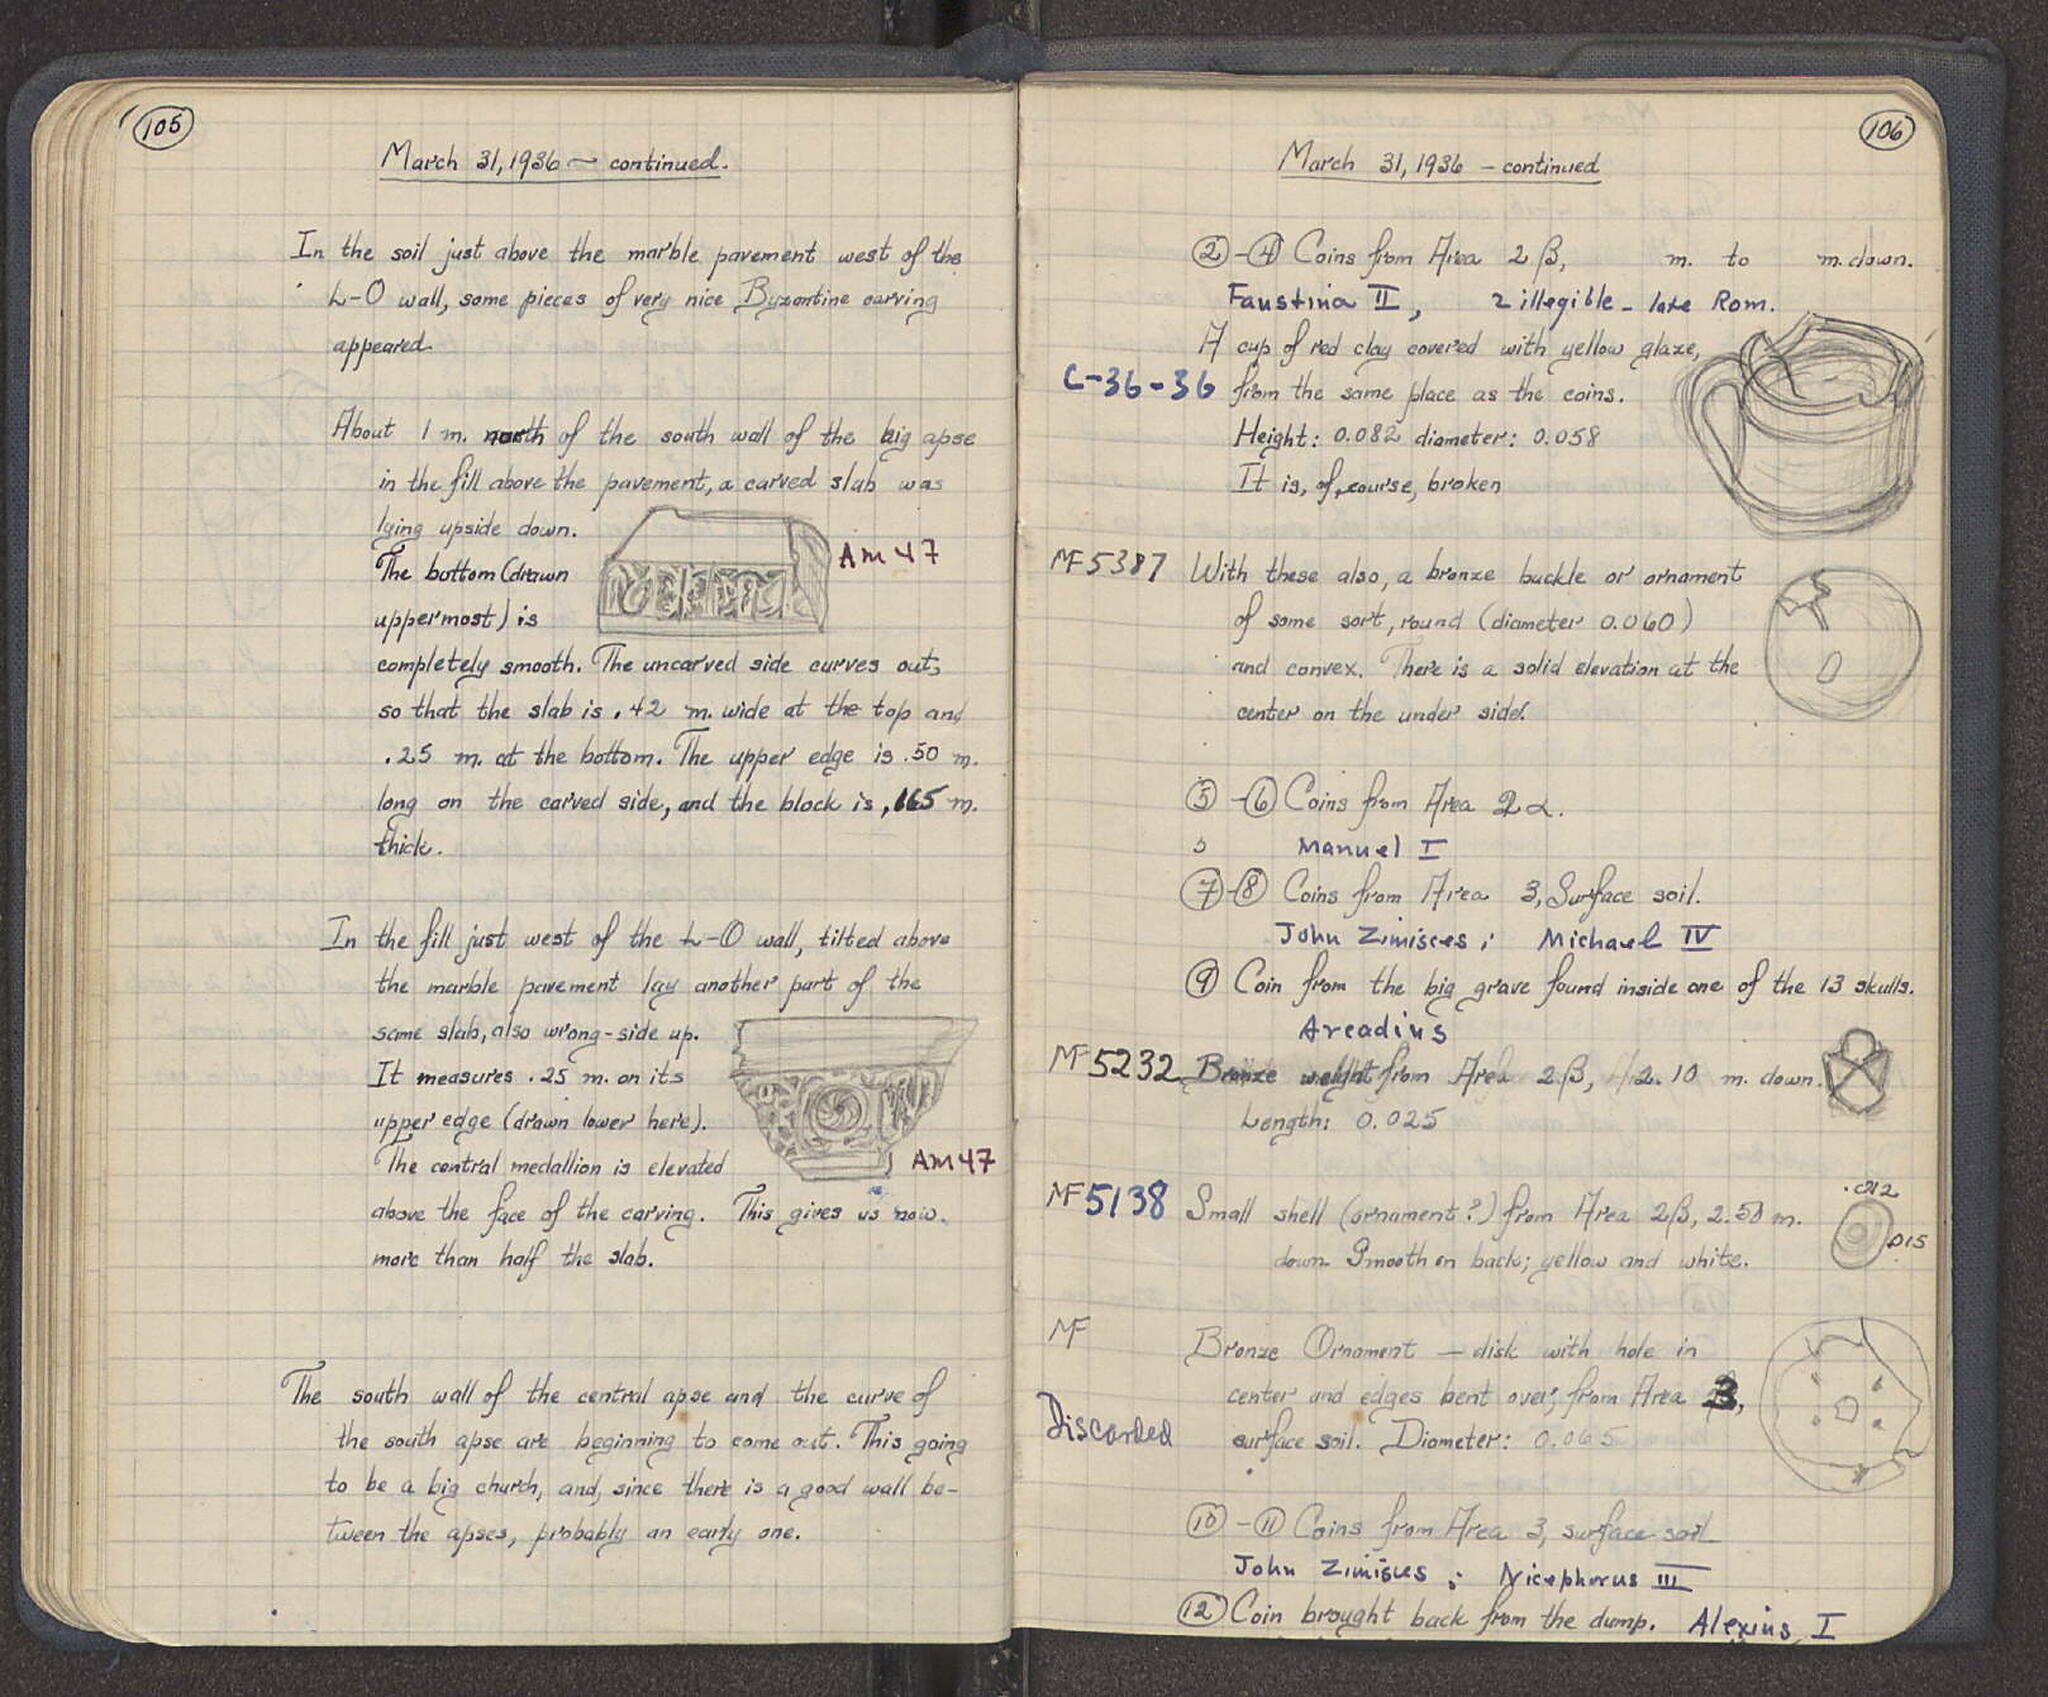 105
March 31, 1936 – continued.
In the soil just above the marble pavement west of the
L-O wall, some pieces of very nice Byzantine carving
appeared.
About 1 m. north of the south wall of the big apse
in the fill above the pavement, a carved slab was
lying upside down.
Am 47
The bottom (drawn
uppermost) is
completely smooth. The uncarved side curves out,
so that the slab is .42 m. wide at the top and
.25 m. at the bottom. The upper edge is .50 m.
long on the carved side, and the block is .165 m.
thick.
In the fill just west of the L-O wall, tilted above
the marble pavement lay another part of the
same slab, also wrong-side up.
It measures .25 m. on its
upper edge (drawn lower here).
The central medallion is elevated
AM 47
above the face of the carving. This gives us now
more than half the slab.
The south wall of the central apse and the curve of
the south apse are beginning to come out. This going
to be a big church, and, since there is a good wall be-
tween the apses, probably an early one.
106
March 31, 1936 – continued
② - ④ Coins from Area 2 β, m. to m. down.
Faustina II, 2 illegible – late Rom.
A cup of red clay covered with yellow glaze,
C-36-36 from the same place as the coins.
Height: 0.082 diameter: 0.058
It is, of, course, broken
MF 5387 With these also, a bronze buckle or ornament
of some sort, round (diameter 0.060)
and convex. There is a solid elevation at the
center on the under side.
⑤ - ⑥ Coins from Area 2 α.
Manuel I
⑦ - ⑧ Coins from Area 3, Surface soil.
John Zimisces; Michael IV
⑨ Coin from the big grave found inside one of the 13 skulls.
Arcadius
MF 5232 Bronze weight from Area 2 β, 2.10 m. down.
Length: 0.025
MF 5138 Small shell (ornament?) from Area 2β, 2.50 m.
.012
.015
down Smooth on back; yellow and white.
MF Bronze Ornament – disk with hole in
center and edges bent over, from Area 3,
Discarded surface soil. Diameter: 0.065
⑩ - ⑪ Coins from Area 3, surface soil
John Zimisces; Nicephorus III
⑫ Coin brought back from the dump. Alexius I